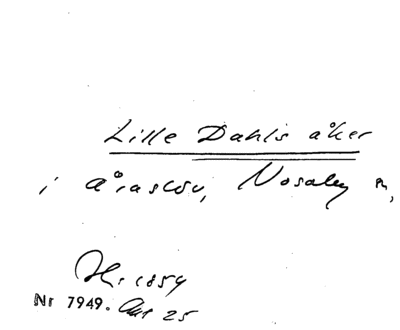 Lille Dahls åker
i Åraslöv, Nosaby sn,
1859
Nr 7949. Akt 25